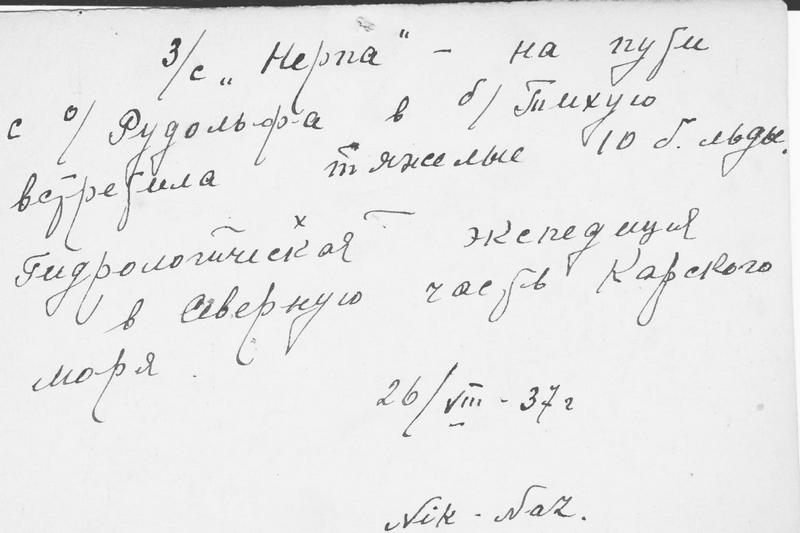 З/с „Нерпа" - на пути
с о/ Рудольфа в б/ Тихую
встретила тяжелые 10 б. льды.
Гидрологическая экспедиция
в Северную часть Карского
моря.
26/VIII - 37 г
Nik - Naz.